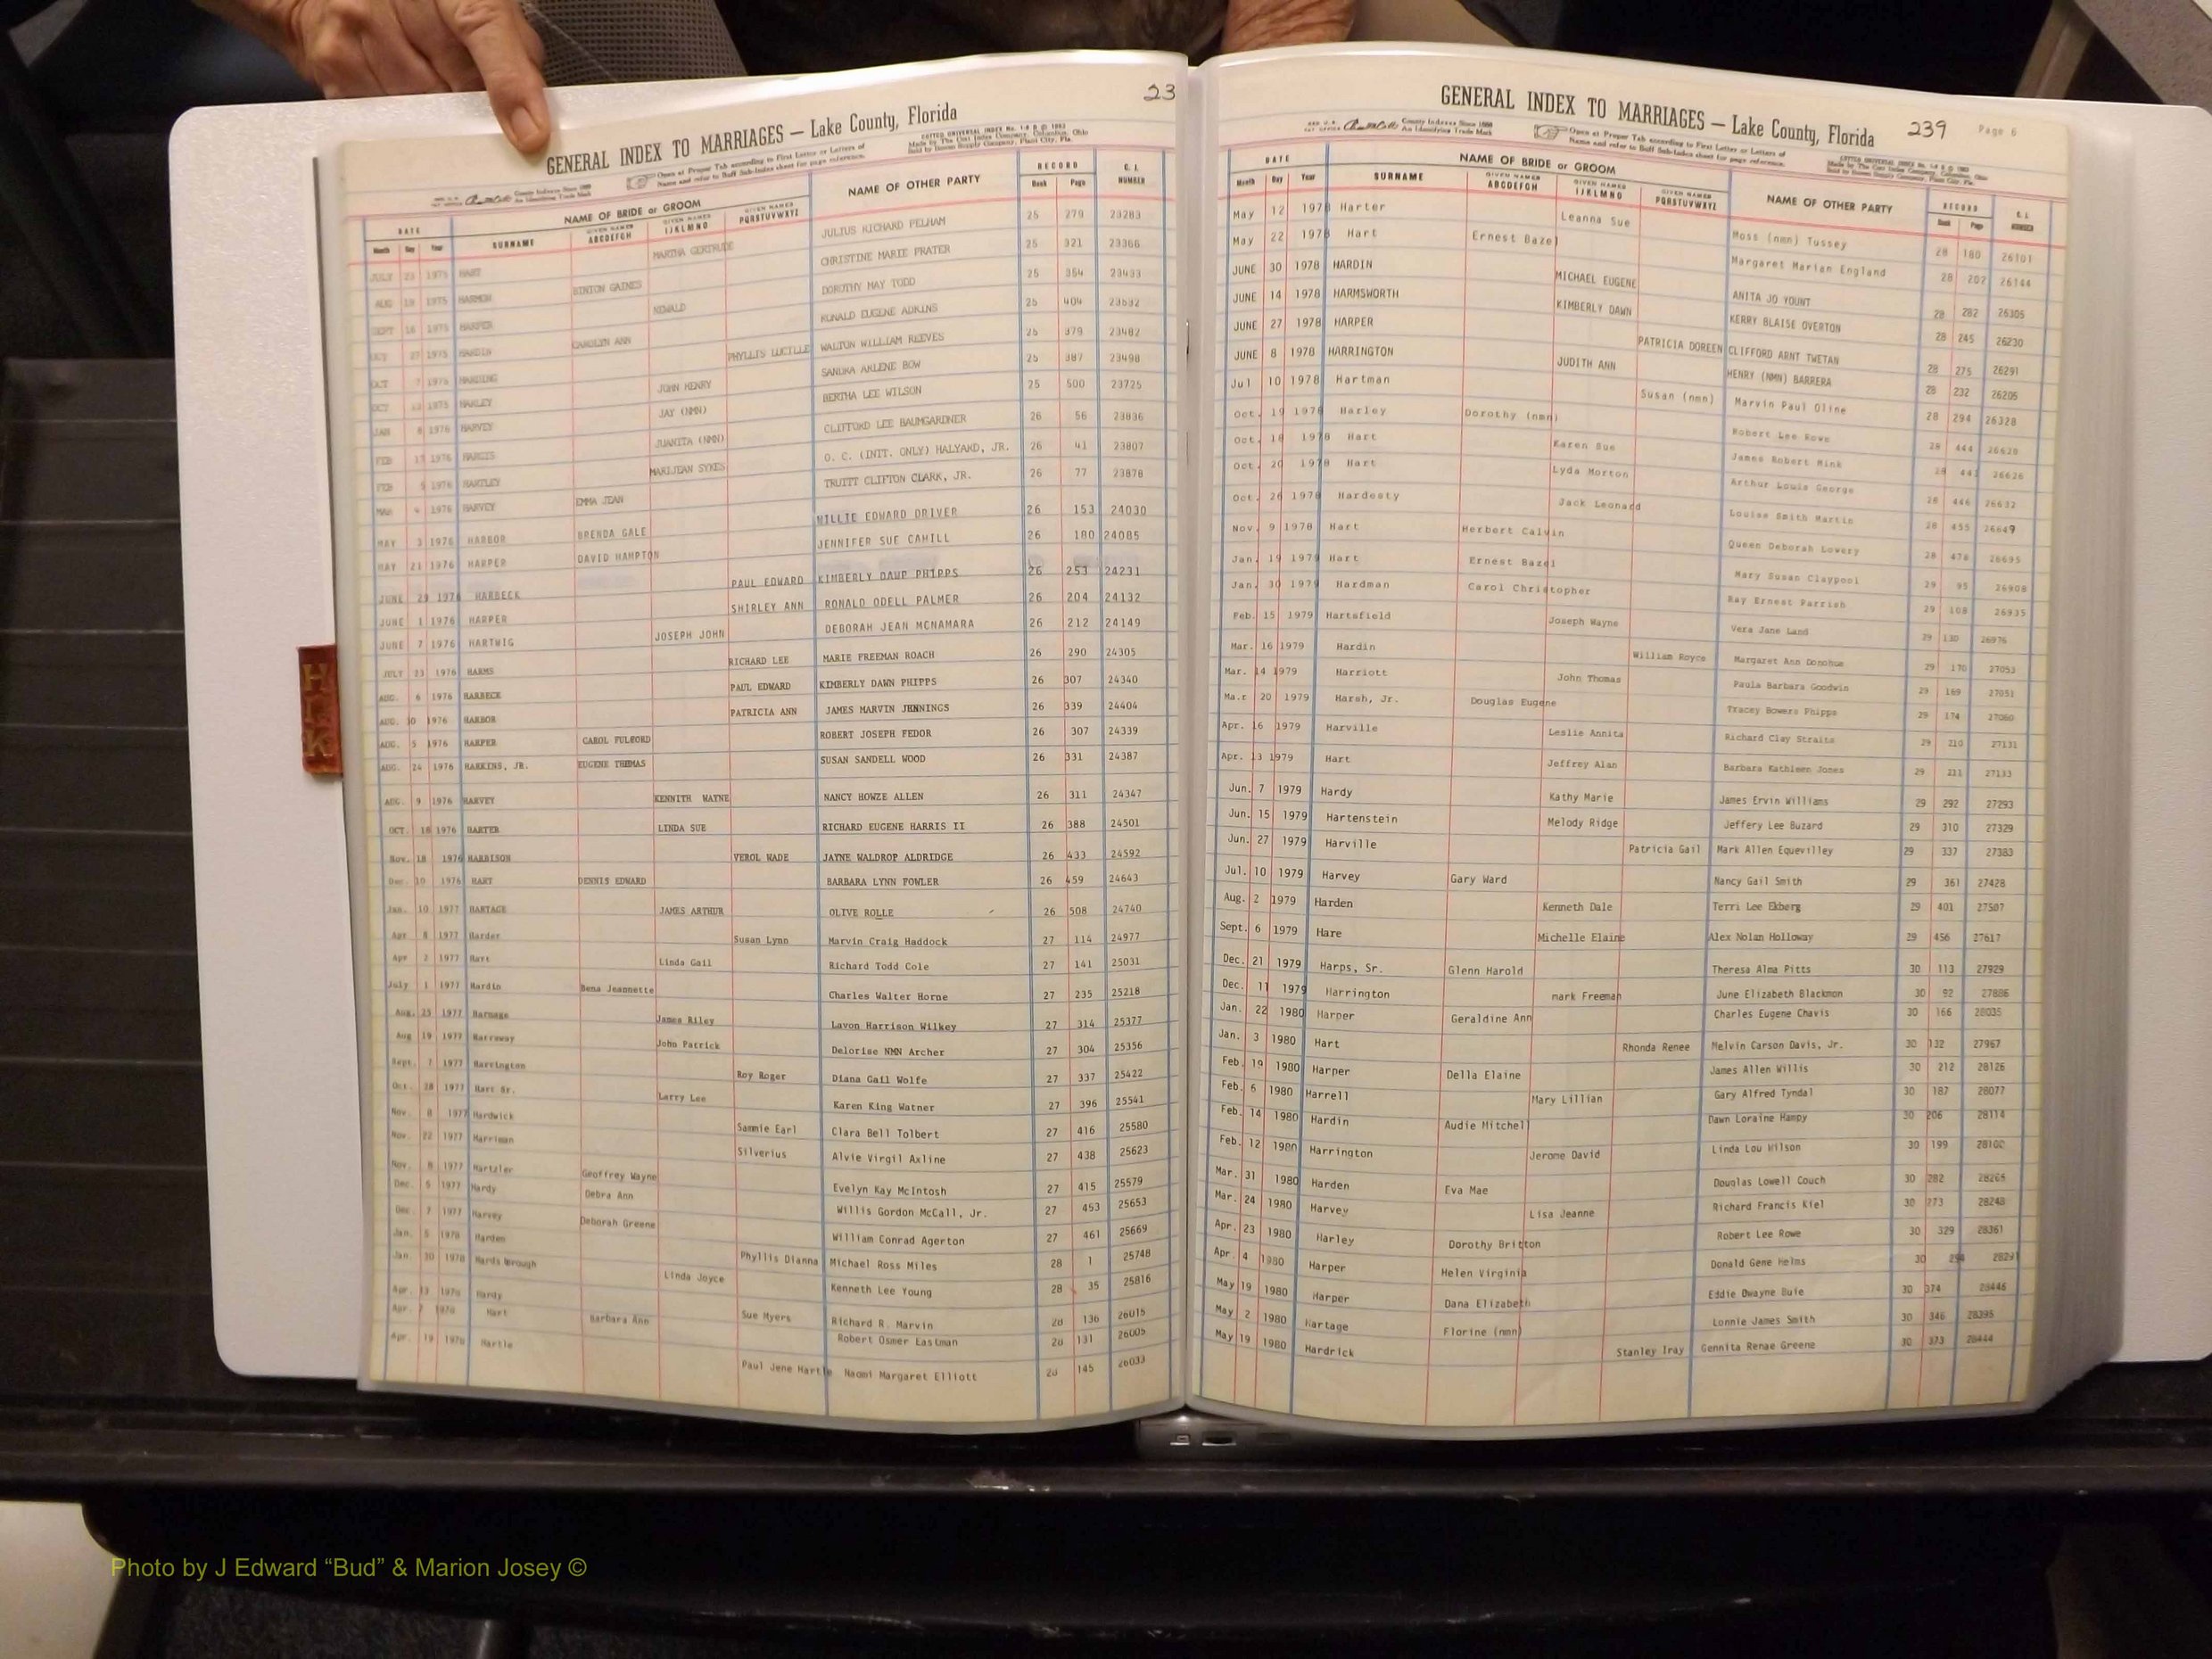 23
GENERAL INDEX TO MARRIAGES — Lake County, Florida
County Indexes Since 1888
An Identifying Trade Mark
Open at Proper Tab according to First Letter or Letters of
Name and refer to Buff Sub-Index sheet for page reference.
DATE NAME OF BRIDE or GROOM NAME OF OTHER PARTY RECORD C. I. NUMBER
Month Day Year SURNAME GIVEN NAMES ABCDEFGH GIVEN NAMES IJKLMNO GIVEN NAMES PQRSTUVWXYZ Book Page
JULY 1975 HART MARTHA GERTRUDE JULIUS RICHARD PELHAM 25 279 23283
AUG 1975 HARMON BINION GAINES CHRISTINE MARIE PRATER 25 321 23366
SEPT 1975 HARPER NEWALD DOROTHY MAY TODD 25 354 23433
OCT 27 1975 HARDIN CAROLYN ANN RONALD EUGENE ADKINS 25 404 23532
OCT 7 1975 HARDING PHYLLIS LUCILLE WALTON WILLIAM REEVES 25 379 23482
OCT 1975 HARLEY JOHN HENRY SANDRA ARLENE BOW 25 387 23498
JAN 8 1976 HARVEY JAY (NMN) BERTHA LEE WILSON 25 500 23725
FEB 1976 HARGIS JUANITA (NMN) CLIFFORD LEE BAUMGARDNER 26 56 23836
FEB 5 1976 HARTLEY MARIJEAN SYKES O. C. (INIT. ONLY) HALYARD, JR. 26 41 23807
MAR 1976 HARVEY EMMA JEAN TRUITT CLIFTON CLARK, JR. 26 77 23878
MAY 3 1976 HARBOR BRENDA GALE WILLIE EDWARD DRIVER 26 153 24030
MAY 21 1976 HARPER DAVID HAMPTON JENNIFER SUE CAHILL 26 180 24085
JUNE 29 1976 HARBECK PAUL EDWARD KIMBERLY DAWP PHIPPS 26 253 24231
JUNE 1 1976 HARPER SHIRLEY ANN RONALD ODELL PALMER 26 204 24132
JUNE 7 1976 HARTWIG JOSEPH JOHN DEBORAH JEAN MCNAMARA 26 212 24149
JULY 23 1976 HARMS RICHARD LEE MARIE FREEMAN ROACH 26 290 24305
AUG. 6 1976 HARBECK PAUL EDWARD KIMBERLY DAWN PHIPPS 26 307 24340
AUG. 30 1976 HARBOR PATRICIA ANN JAMES MARVIN JENNINGS 26 339 24404
AUG. 5 1976 HARPER CAROL FULFORD ROBERT JOSEPH FEDOR 26 307 24339
AUG. 24 1976 HARKINS, JR. EUGENE THOMAS SUSAN SANDELL WOOD 26 331 24387
AUG. 9 1976 HARVEY KENNITH WAYNE NANCY HOWZE ALLEN 26 311 24347
OCT. 18 1976 HARTER LINDA SUE RICHARD EUGENE HARRIS II 26 388 24501
Nov. 18 1976 HARBISON VEROL WADE JAYNE WALDROP ALDRIDGE 26 433 24592
Dec. 10 1976 HART DENNIS EDWARD BARBARA LYNN FOWLER 26 459 24643
Jan. 10 1977 HARTAGE JAMES ARTHUR OLIVE ROLLE 26 508 24740
Apr 8 1977 Harder Susan Lynn Marvin Craig Haddock 27 114 24977
Apr 2 1977 Hart Linda Gail Richard Todd Cole 27 141 25031
July 1 1977 Hardin Bena Jeannette Charles Walter Horne 27 235 25218
Aug. 25 1977 Harnage James Riley Lavon Harrison Wilkey 27 314 25377
Aug 19 1977 Harraway John Patrick Delorise NMN Archer 27 304 25356
Sept. 7 1977 Harrington Roy Roger Diana Gail Wolfe 27 337 25422
Oct. 28 1977 Hart Sr. Larry Lee Karen King Watner 27 396 25541
Nov. 8 1977 Hardwick Sammie Earl Clara Bell Tolbert 27 416 25580
Nov. 22 1977 Harriman Silverius Alvie Virgil Axline 27 438 25623
Nov. 8 1977 Hartzler Geoffrey Wayne Evelyn Kay McIntosh 27 415 25579
Dec. 5 1977 Hardy Debra Ann Willis Gordon McCall, Jr. 27 453 25653
Dec. 7 1977 Harvey Deborah Greene William Conrad Agerton 27 461 25669
Jan. 5 1978 Harden Phyllis Dianna Michael Ross Miles 28 1 25748
Jan. 30 1978 Hardsbrough Linda Joyce Kenneth Lee Young 28 35 25816
Apr. 13 1978 Hardy Sue Myers Richard R. Marvin 28 136 26015
Apr. 7 1978 Hart Barbara Ann Robert Osmer Eastman 28 131 26005
Apr. 19 1978 Hartle Paul Jene Hartle Naomi Margaret Elliott 28 145 26033
HIJK
GENERAL INDEX TO MARRIAGES — Lake County, Florida 239 Page 6
County Indexes Since 1888
An Identifying Trade Mark
Open at Proper Tab according to First Letter or Letters of
Name and refer to Buff Sub-Index sheet for page reference.
DATE NAME OF BRIDE or GROOM NAME OF OTHER PARTY RECORD C. I. NUMBER
Month Day Year SURNAME GIVEN NAMES ABCDEFGH GIVEN NAMES IJKLMNO GIVEN NAMES PQRSTUVWXYZ Book Page
May 12 1978 Harter Leanna Sue Moss (nmn) Tussey 28 180 26101
May 22 1978 Hart Ernest Bazel Margaret Marian England 28 202 26144
JUNE 30 1978 HARDIN MICHAEL EUGENE ANITA JO YOUNT 28 282 26305
JUNE 14 1978 HARMSWORTH KIMBERLY DAWN KERRY BLAISE OVERTON 28 245 26230
JUNE 27 1978 HARPER PATRICIA DOREEN CLIFFORD ARNT TWETAN 28 275 26291
JUNE 8 1978 HARRINGTON JUDITH ANN HENRY (NMN) BARRERA 28 232 26205
Jul 10 1978 Hartman Susan (nmn) Marvin Paul Oline 28 294 26328
Oct. 19 1978 Harley Dorothy (nmn) Robert Lee Rowe 28 444 26628
Oct. 18 1978 Hart Karen Sue James Robert Mink 28 441 26626
Oct. 20 1978 Hart Lyda Morton Arthur Louis George 28 446 26632
Oct. 26 1978 Hardesty Jack Leonard Louise Smith Martin 28 455 26649
Nov. 9 1978 Hart Herbert Calvin Queen Deborah Lowery 28 478 26695
Jan. 19 1979 Hart Ernest Bazel Mary Susan Claypool 29 95 26908
Jan. 30 1979 Hardman Carol Christopher Ray Ernest Parrish 29 108 26935
Feb. 15 1979 Hartsfield Joseph Wayne Vera Jane Land 29 130 26976
Mar. 16 1979 Hardin William Royce Margaret Ann Donohue 29 170 27053
Mar. 14 1979 Harriott John Thomas Paula Barbara Goodwin 29 169 27051
Ma.r 20 1979 Harsh, Jr. Douglas Eugene Tracey Bowers Phipps 29 174 27060
Apr. 16 1979 Harville Leslie Annita Richard Clay Straits 29 210 27131
Apr. 13 1979 Hart Jeffrey Alan Barbara Kathleen Jones 29 211 27133
Jun. 7 1979 Hardy Kathy Marie James Ervin Williams 29 292 27293
Jun. 15 1979 Hartenstein Melody Ridge Jeffery Lee Buzard 29 310 27329
Jun. 27 1979 Harville Patricia Gail Mark Allen Equevilley 29 337 27383
Jul. 10 1979 Harvey Gary Ward Nancy Gail Smith 29 361 27428
Aug. 2 1979 Harden Kenneth Dale Terri Lee Ekberg 29 401 27507
Sept. 6 1979 Hare Michelle Elaine Alex Nolan Holloway 29 456 27617
Dec. 21 1979 Harps, Sr. Glenn Harold Theresa Alma Pitts 30 113 27929
Dec. 11 1979 Harrington mark Freeman June Elizabeth Blackmon 30 92 27886
Jan. 22 1980 Harper Geraldine Ann Charles Eugene Chavis 30 166 28035
Jan. 3 1980 Hart Rhonda Renee Melvin Carson Davis, Jr. 30 132 27967
Feb. 19 1980 Harper Della Elaine James Allen Willis 30 212 28126
Feb. 6 1980 Harrell Mary Lillian Gary Alfred Tyndal 30 187 28077
Feb. 14 1980 Hardin Audie Mitchell Dawn Loraine Hampy 30 206 28114
Feb. 12 1980 Harrington Jerome David Linda Lou Wilson 30 199 28100
Mar. 31 1980 Harden Eva Mae Douglas Lowell Couch 30 282 28265
Mar. 24 1980 Harvey Lisa Jeanne Richard Francis Kiel 30 273 28248
Apr. 23 1980 Harley Dorothy Britton Robert Lee Rowe 30 329 28361
Apr. 4 1980 Harper Helen Virginia Donald Gene Helms 30 294 28291
May 19 1980 Harper Dana Elizabeth Eddie Dwayne Buie 30 374 28446
May 2 1980 Hartage Florine (nmn) Lonnie James Smith 30 346 28395
May 19 1980 Hardrick Stanley Iray Gennita Renae Greene 30 373 28444
Photo by J Edward “Bud” & Marion Josey ©